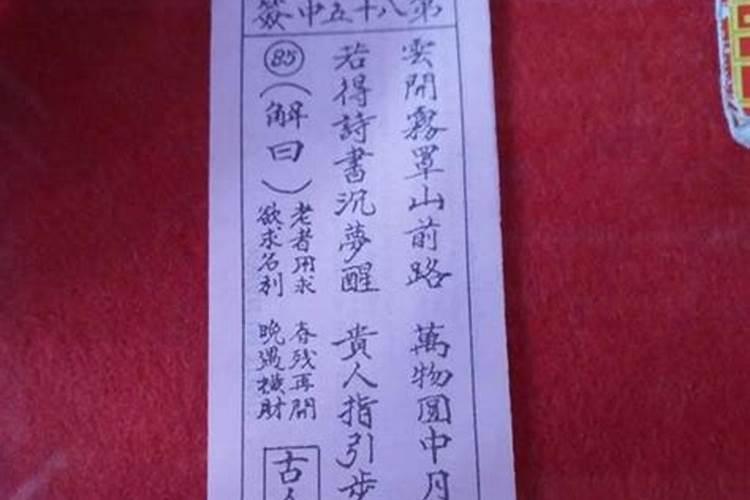 第八十五中簽
雲開霧罩山前路　萬物圓中月
若得詩書沉夢醒　貴人指引步
85
（解曰）
老者用求　春殘再開
欲求名利　晚遇橫財
古人